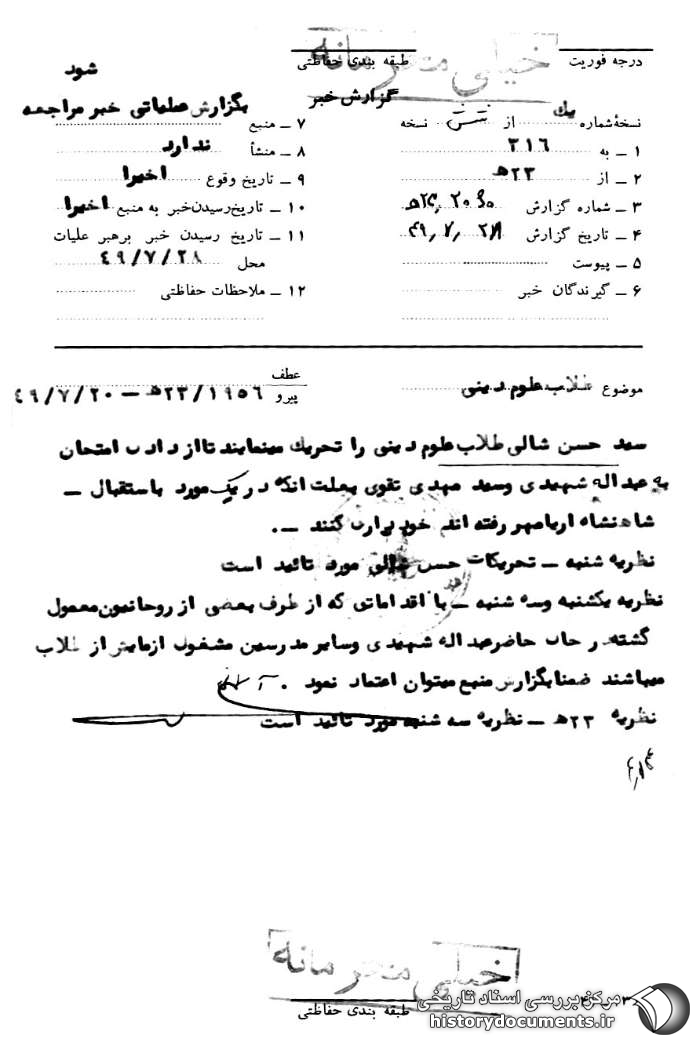 خیلی محرمانه
درجه فوریت
طبقه بندی حفاظتی
شود
گزارش خبر
بگزارش عملیاتی خبر مراجعه
نسخهٔ شماره یک از شش نسخه
۱ ـ به ۳۱۶
۲ ـ از ۲۳ه
۳ ـ شماره گزارش
۴ ـ تاریخ گزارش ۴۹٫۷٫۲۸
۵ ـ پیوست
۶ ـ گیرندگان خبر
۷ ـ منبع
۸ ـ منشأ ندارد
۹ ـ تاریخ وقوع اخیرا
۱۰ ـ تاریخ رسیدن خبر به منبع اخیرا
۱۱ ـ تاریخ رسیدن خبر برهبر عملیات
محل ۴۹/۷/۲۸
۱۲ ـ ملاحظات حفاظتی
موضوع طلاب علوم دینی
عطف
پیرو ۲۳/۱۹۵۶ه ـ ۴۹/۷/۲۰
سید حسن شالی طلاب علوم دینی را تحریک مینمایند تا از دادن امتحان
به عبداله شهیدی وسید مهدی تقوی بعلت انکه در یک مورد باستقبال ـ
شاهنشاه اریامهر رفته اند خودداری کنند ـ.
نظریه شنبه ـ تحریکات حسن شالی مورد تائید است
نظریه یکشنبه وسه شنبه ـ با اقداماتی که از طرف بعضی از روحانیون معمول
گشته در حال حاضر عبداله شهیدی وسایر مدرسین مشغول ازمایش از طلاب
میباشند ضمنا بگزارش منبع میتوان اعتماد نمود .
نظریه ۲۳ه ـ نظریه سه شنبه مورد تائید است
خیلی محرمانه
طبقه بندی حفاظتی
۳
مرکز بررسی اسناد تاریخی
historydocuments.ir